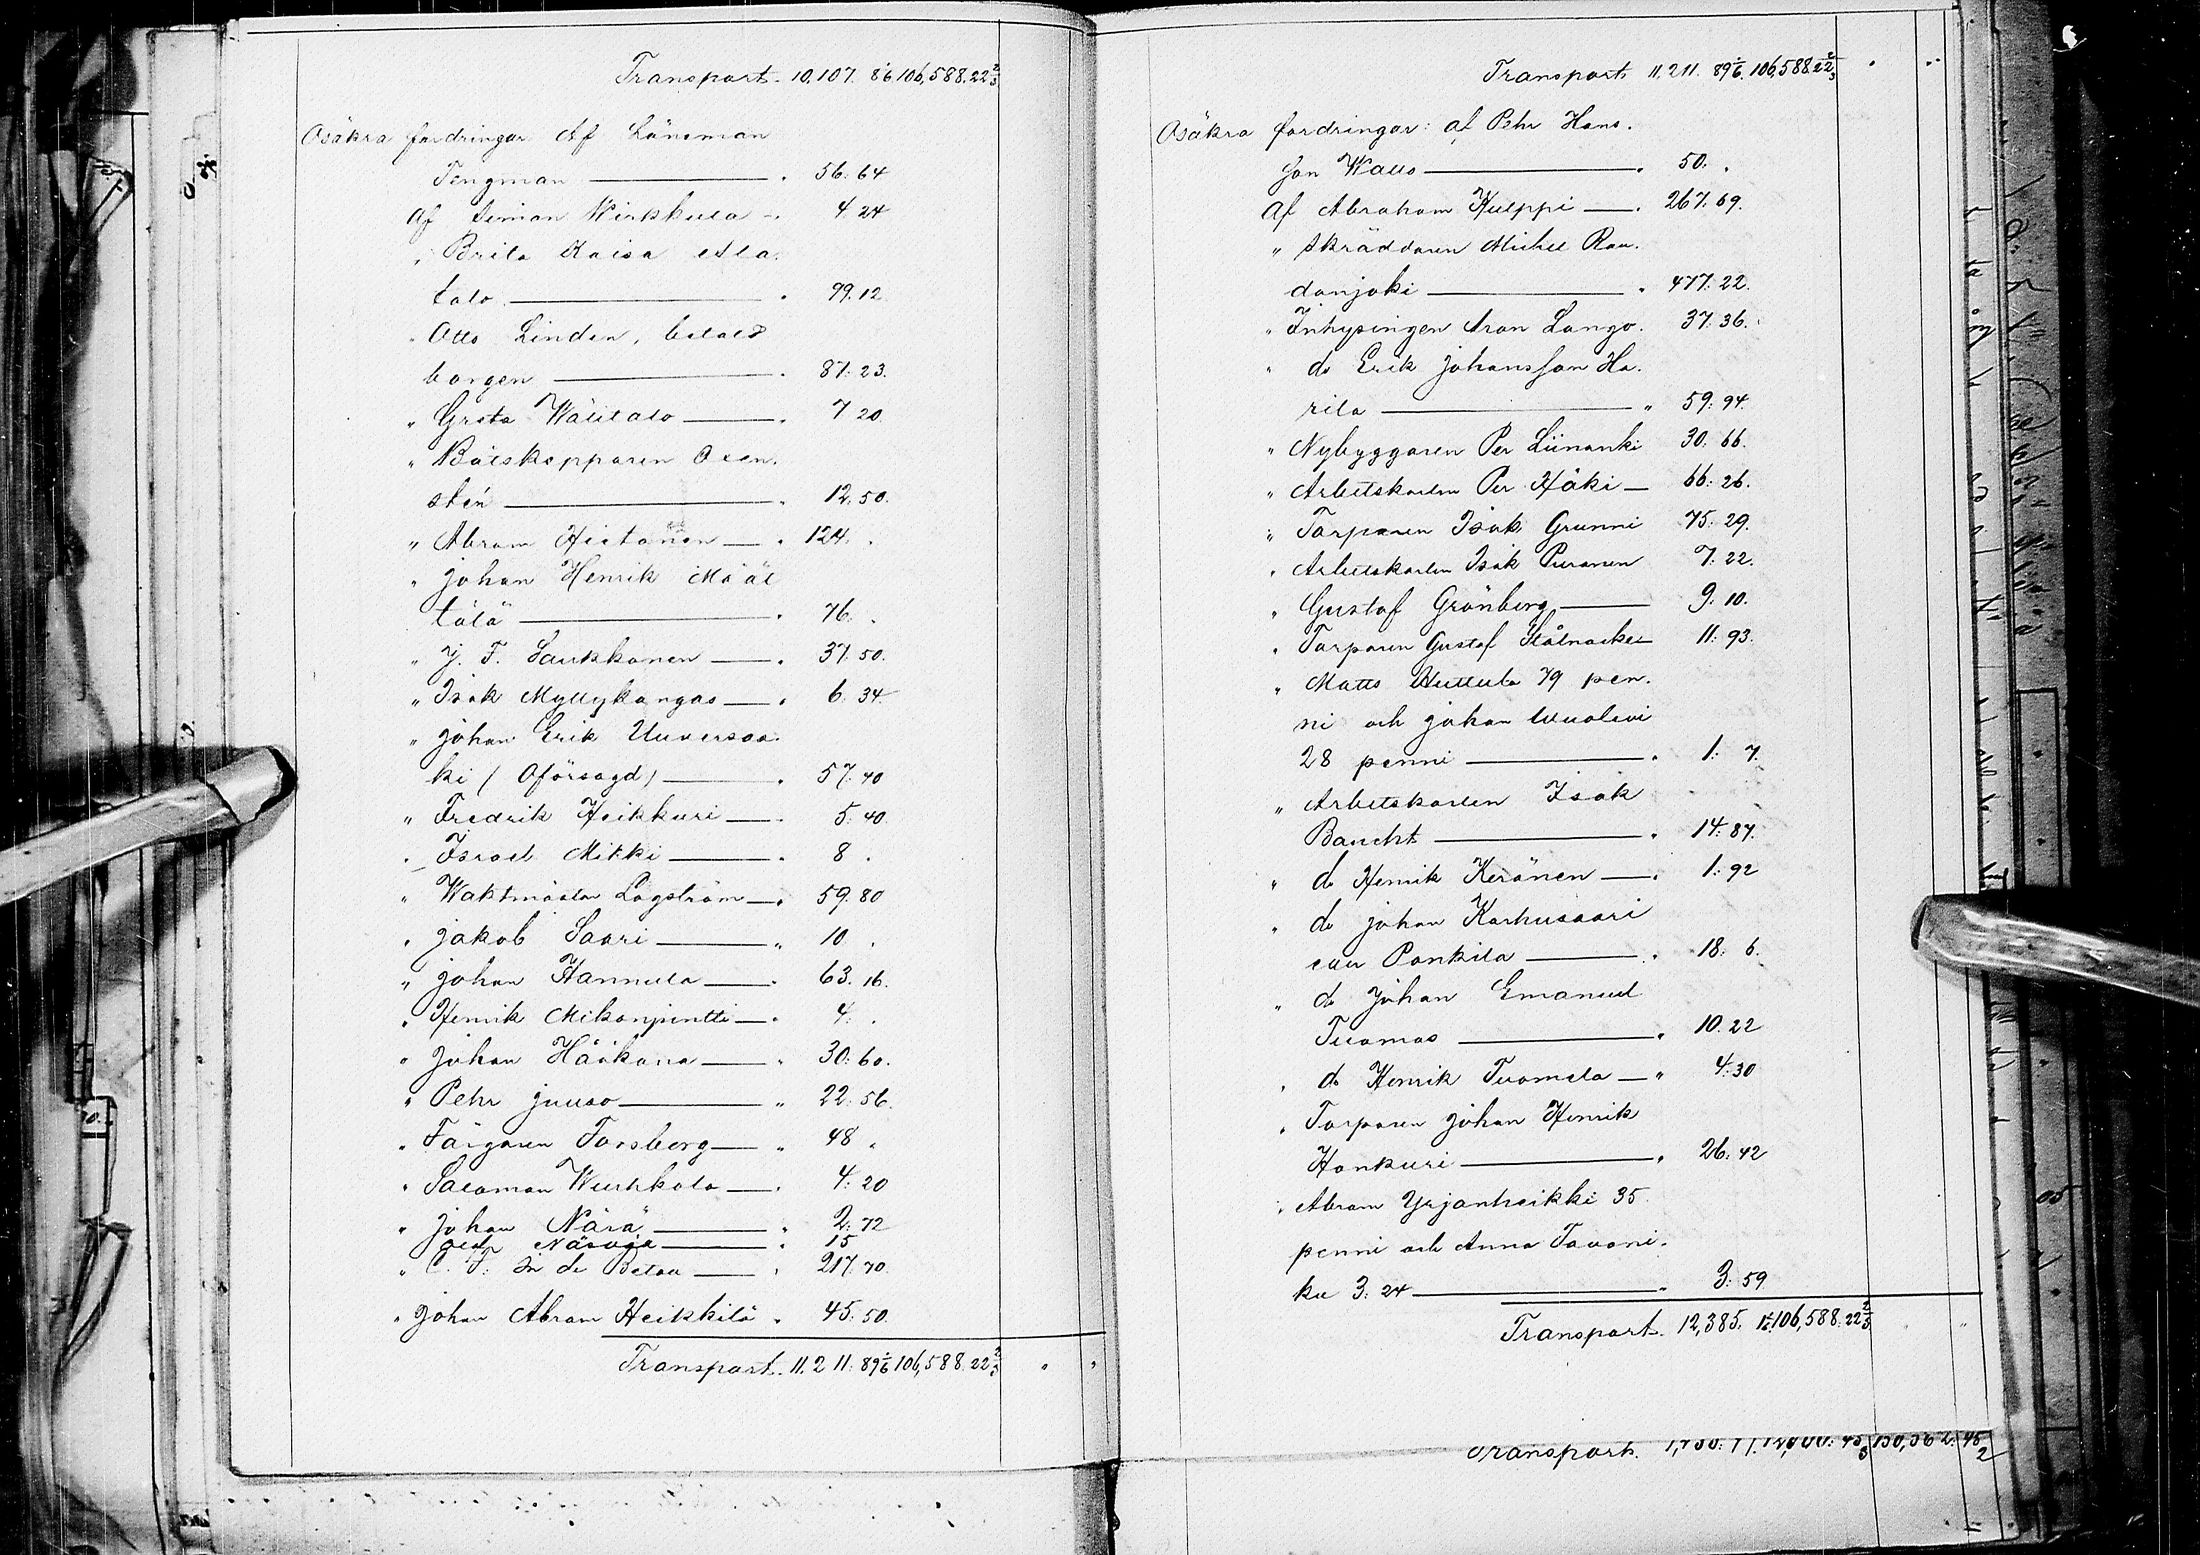 Transport. 10,107. 8 1/6 106,588. 22 2/3
Osäkra fordringar Af Länsman
Tingman — " 56: 64
Af Simon Wirkkula — " 4 24
" Brita Kaisa Ala-
talo — " 99. 12
" Otto Linden, betald
borgen — " 87: 23.
" Greta Wälitalo — " 7 20
" Båtskepparen Oxen-
sten — " 12. 50.
" Abram Hietanen — " 124. "
" Johan Henrik Määt
tälä — " 76. "
" J. F. Saukkonen — " 37. 50.
" Isak Myllykangas — " 6. 34.
" Johan Erik Unversaa-
ki (Oförsagd) — " 57. 40
" Fredrik Heikkuri — " 5. 40
" Israel Mikki — " 8 "
" Waktmästar Lagström — " 59. 80
" Jakob Saari — " 10 "
" Johan Hannula — " 63. 16.
" Henrik Mikonpentti — " 4. "
" Johan Hääkana — " 30: 60.
" Pehr Juuso — " 22: 56.
" Färgaren Forsberg — " 48 "
" Salomon Wuohkola — " 4: 20
" Johan Närä — " 2: 72
Näsvja — " 15
" C. F. In de Betou — " 217. 70
" Johan Abram Heikkilä " 45: 50.
Transport. 11.211: 89 1/6 106,588. 22 2/3
Transport 11.211. 89 1/6. 106,588. 22 2/3
Osäkra fordringar: af Pehr Hans-
son Watto — " 50. "
Af Abraham Kulppi — " 267. 69.
" Skräddaren Michel Rau-
danjoki — " 477: 22.
" Inhysingen Aron Lango. 37: 36.
" do Erik Johansson Ha-
rila — " 59: 94.
" Nybyggaren Per Liinanki 30: 66.
" Arbetskarlen Per Häki — 66: 26.
" Torparen Isak Grunni 75: 29.
" Arbetskarlen Isak Puranen 7: 22.
" Gustaf Grönberg — 9: 10.
" Torparen Gustaf Stålnacke — 11: 93.
" Matts Huttula 79 pen-
ni och Johan Wuolevi
28 penni — " 1: 7.
" Arbetskarlen Isak
Baucht — " 14: 87.
" do Henrik Keränen — " 1: 92
" do Johan Karhusaari
eller Ponkila — " 18: 6.
" do Johan Emanuel
Tuomas — " 10. 22
" do Henrik Tuomela — " 4: 30
" Torparen Johan Henrik
Honkuri — " 26: 42
" Abram Yrjanheikki 35
penni och Anna Tavani-
ku 3: 24 — " 3: 59
Transport. 12,385. 106,588. 22 2/3
Transport.